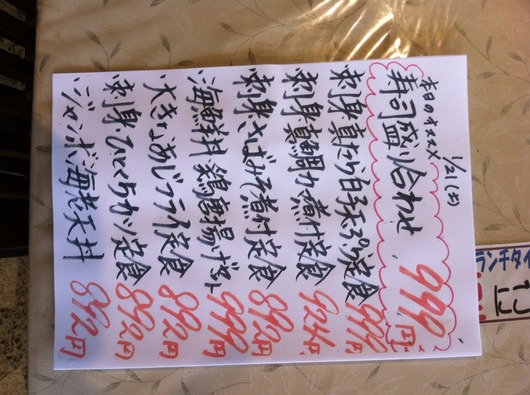 本日のオススメ 1/21(土)
寿司盛り合わせ 999円
刺身 真たら白子天ぷら定食 999円
刺身 真鯛カマ煮付定食 924円
刺身 さばみそ煮付定食 892円
海鮮丼 鶏唐揚げセット 999円
大きなあじフライ定食 892円
刺身 ひとくちカツ定食 892円
ジャンボ海老天丼 892円
ランチタイ